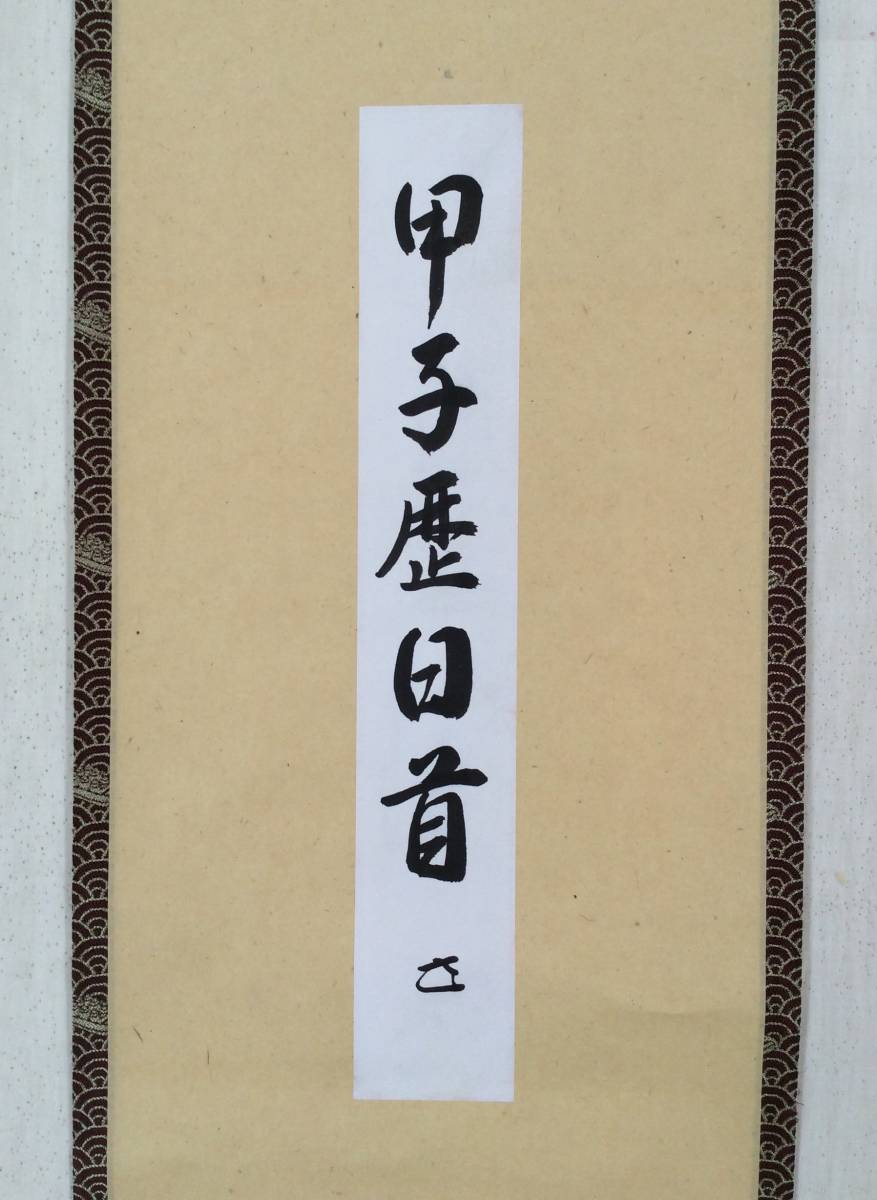 甲子歴日首